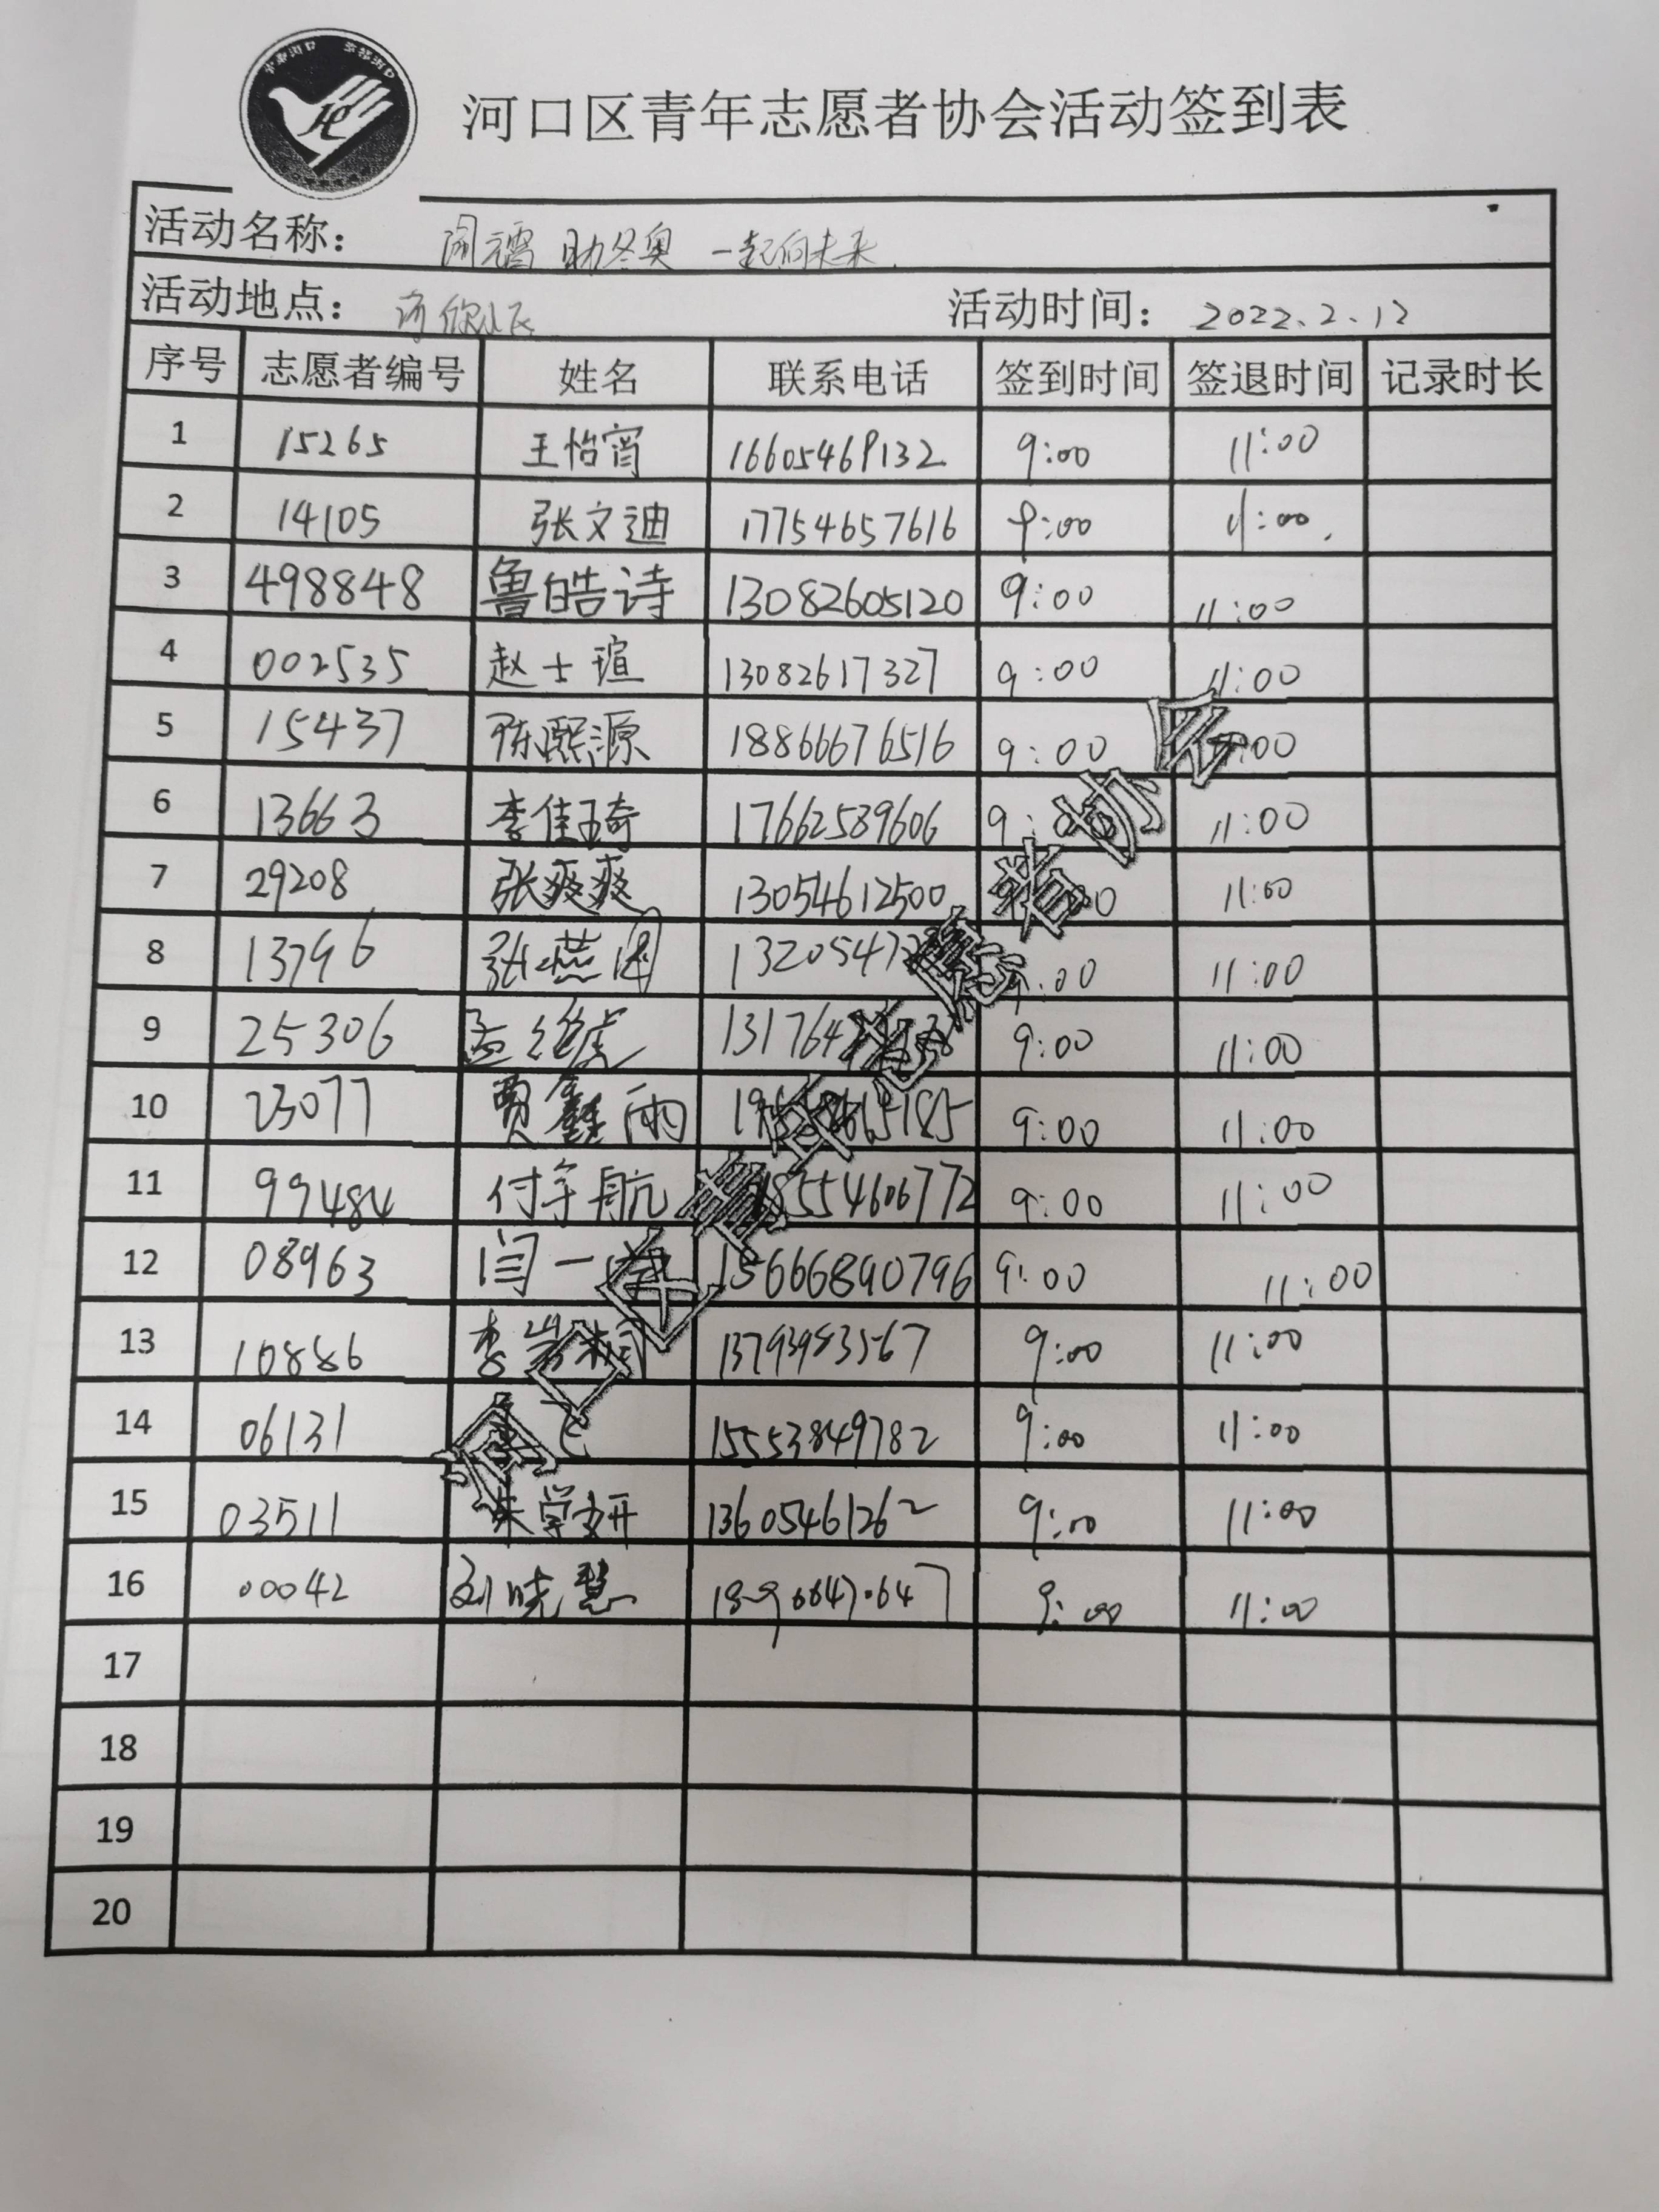 河口区青年志愿者协会活动签到表
活动名称： 闹元宵 助冬奥 一起向未来
活动地点： 小区 活动时间： 2022.2.12
序号 志愿者编号 姓名 联系电话 签到时间 签退时间 记录时长
1 15265 王怡宵 16605469132 9:00 11:00
2 14105 张文迪 17754657616 9:00 11:00
3 498848 鲁皓诗 13082605120 9:00 11:00
4 002535 赵士瑄 13082617327 9:00 11:00
5 15437 陈熙源 18866676516 9:00 11:00
6 13663 李佳琦 17662589606 9:00 11:00
7 29208 张爽爽 13054612500 9:00 11:00
8 13796 张燕 9:00 11:00
9 25306 孟 虎 9:00 11:00
10 23077 贾鑫雨 9:00 11:00
11 99484 付宇航 18554606772 9:00 11:00
12 08963 闫一 15666890796 9:00 11:00
13 10886 李岩桐 13793983567 9:00 11:00
14 06131 15553849782 9:00 11:00
15 03511 朱学妍 13605461262 9:00 11:00
16 00042 刘晓慧 9:00 11:00
17
18
19
20
河口区青年志愿者协会